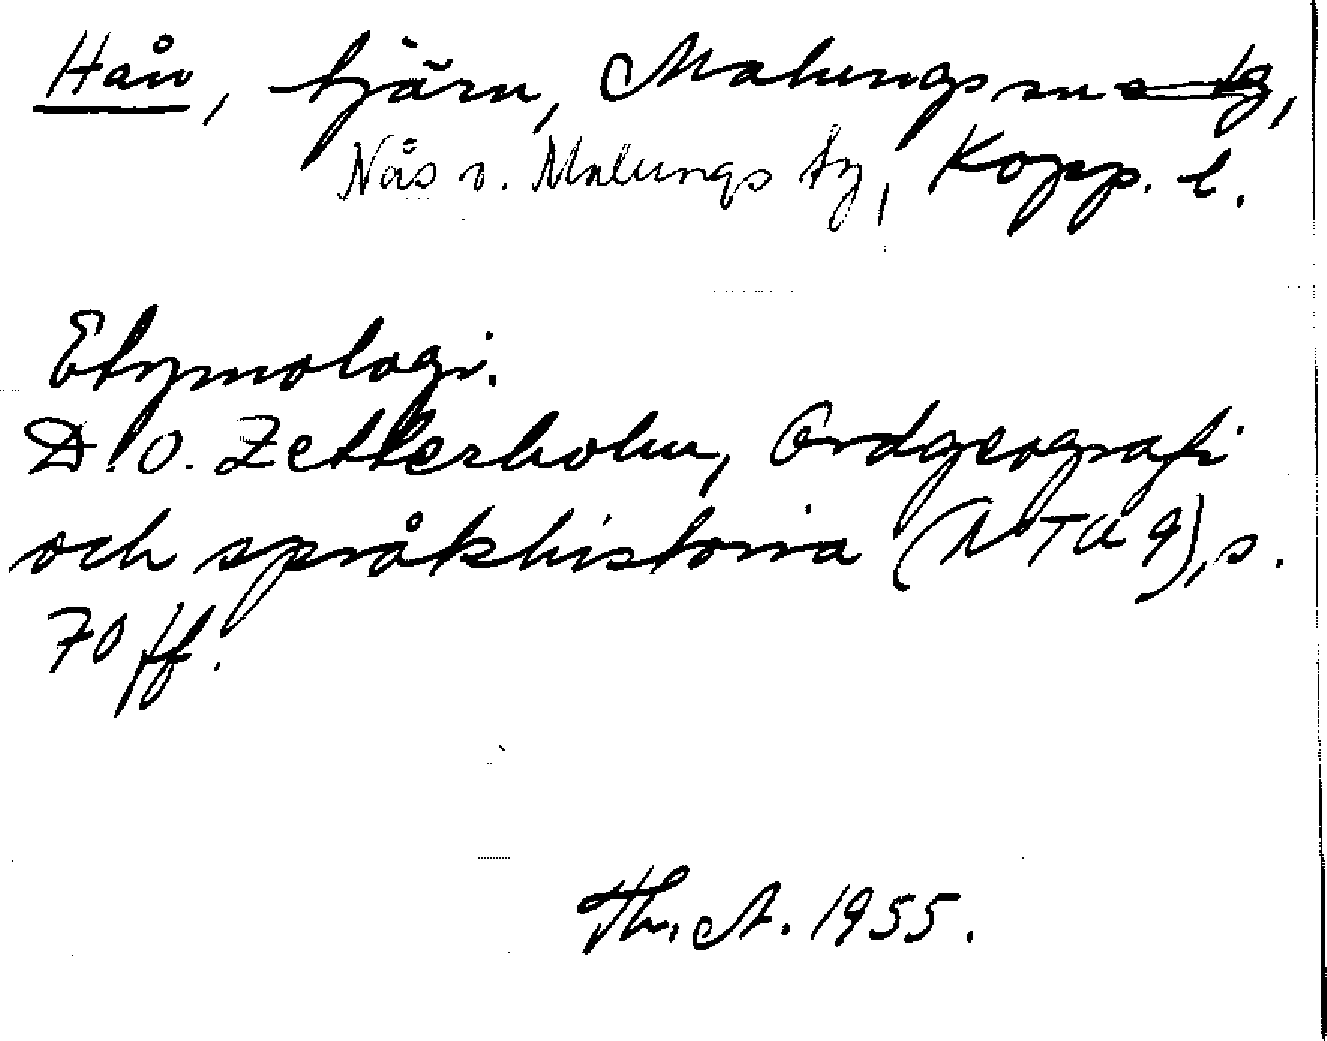 Hån, tjärn, Malungs sn,
Nås o. Malungs tg, Kopp. l.
Etymologi.
D. O. Zetterholm, Ordgeografi
och språkhistoria (NTU 9), s.
70 ff.
Th. A. 1955.